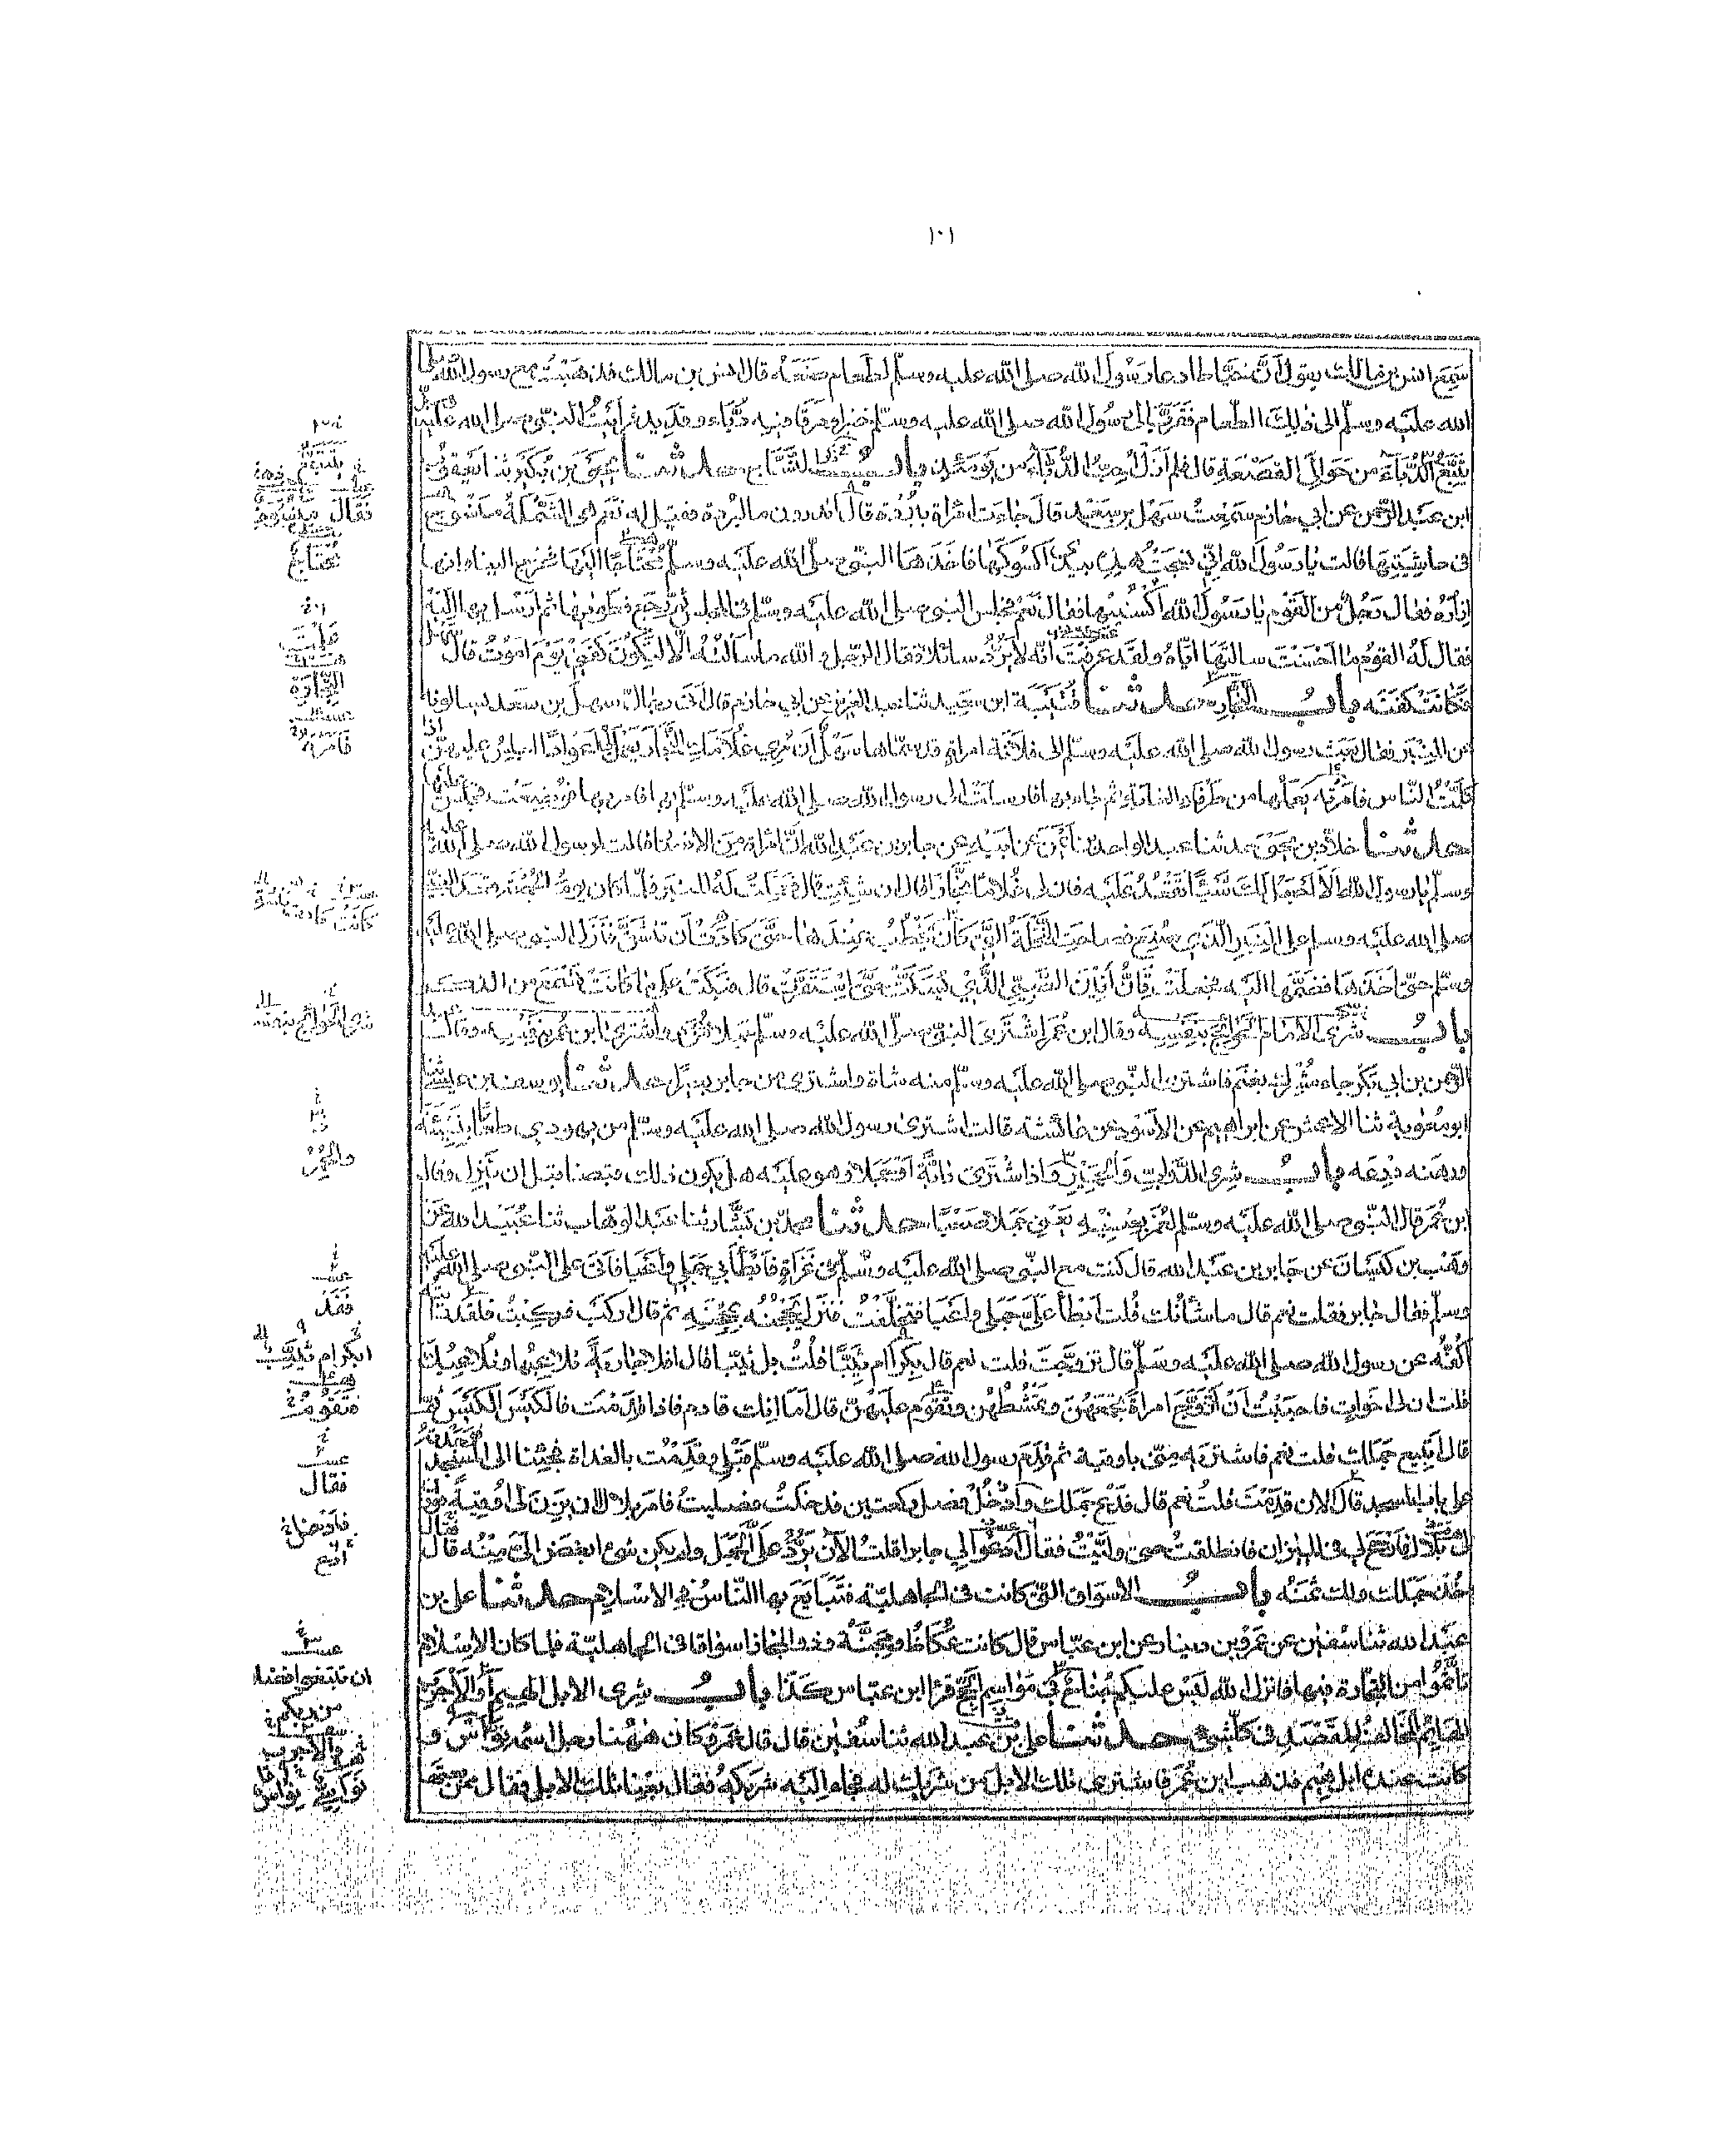 ١٠١
سَمِعَ انس بن مالك يقول اَنَّ خَيَّاطا دعا رَسُولَ الله صلى الله عليه وسلّم لطَعام صَنَعَهُ قال انس بن مالك فذهَبْتُ مع رسول الله صلى
الله عليه وسلّم الى ذلِكَ الطّعام فقرّبَ الى رسُول الله صلى الله عليه وسلّم خبزا ومرقا فيه دُبّاء وقديد فرأَيتُ النبّى صلى الله عليه
يَتَتَبَّعُ الدُّبَّاءَ من حَوَالَىِ القَصْعَةِ قال فلم اَزَلْ اُحِبُّ الدُّبّاءَ من يَومَئِذ بابُ النَّسَّاج حدثنا يحيَى بن بُكَير ثنا يعقوب
ابن عبد الرّحمن عن ابي حازم سَمِعتُ سَهْل بن سَعْد قال جَاءَت امْرَاة ببُرْدَة قال اتدرون ما البُرْدة فقيل له نعَم هى الشَّمْلَةُ منسُوج
فى حاشِيَتِهَا قالت يا رسُولَ الله اِنّي نسَجتُ هذِه بيَدىّ اكْسُوكَهَا فاخذهَا النبىّ صلّى الله عليه وسلّم مُحتَاجًا اليهَا فخرج الينا وانها
اِزَارُهُ فقال رَجُلٌ من القَوْم يا رسُولَ الله اُكْسُنِيْهَا فقال نَعَمْ فجلس النبى صلى الله عليه وسلّم فى المجلس ثمّ رَجَع فطَواها ثم ارْسَل بها اليه
فقال لَهُ القومُ ما احْسَنْتَ سالتَهَا ايّاهُ ولقد عَرفتَ انّه لا يَرُدُّ سائلا فقال الرّجل والله ما سألتُهُ الّا لِتَكُونَ كَفَنِى يَوْمَ اَمُوْتُ قال سهل
فكانَتْ كفَنَه بابُ النجّار حدثنا قُتَيْبَة ابن سَعِيد ثنا عبد العزيز عن ابي حازم قال اَتَى رجال الى سهل بن سَعْد يسالونه
عن المِنْبَر فقال بَعَث رسول الله صلى الله عليه وسلّم الى فلانَة امراةٍ قد سمّاها سَهْلٌ اَن مُرِي غُلَامَكِ النَّجّارَ يَعْمَل لى اَعوَادًا اجلِسُ عليهنّ اذا
كلّمتُ النّاس فامَرَتْه يَعمَلُها من طَرْفَاءِ الغَابَةِ ثم جاء بها فارسلَتْ الى رسول الله صلى الله عليه وسلّم بها فامر بها فوُضِعَت فجلَس عليه
حدثنا خلّاد بن يحيى حدثنا عبد الواحد بن اَيْمَنَ عن ابيْهِ عن جابر بن عَبْدِ الله انّ امْرَاة من الانْصَار قالت لرسول الله صلى الله عليه
وسلّم يا رسول الله اَلَا اَجْعَلُ لَكَ شَيْئًا تَقْعُدُ عليه فان لى غُلَامًا نجَّارًا قال ان شِئْتِ قال فَعَمِلَتْ لَهُ المنبَر فلمّا كان يومُ الجُمُعَة قعَدَ النبىّ
صلى الله عليه وسلم على المِنْبَر الّذي صُنِع فصاحَت النَّخْلَةُ الّتى كانَ يَخْطُبُ عِنْدَهَا حتّى كَادَتْ اَن تَنْشَقَّ فنَزَل النبى صلى الله عليه
وسلّم حتّى اَخَذَهَا فضَمّهَا اليه فجعلَتْ تَئِنُّ اَنِيْنَ الصَّبىِّ الَّذِي يُسَكَّتُ حَتَّى اسْتَقَرَّتْ قال بَكَتْ على مَا كانَتْ تَسْمَع من الذكر
بابُ شِرَى الامَام الحوَائِجَ بِنَفْسِه وقال ابن عُمَر اشْتَرَى النبىّ صلّى الله عليه وسلّم جَمَلا من عُمَرَ واشتَرَى ابن عُمَر بنَفْسِه وقال عبد
الرّحمن بن ابي بَكْر جاء مُشْرِكٌ بغنَم فاشترى النبّى صلى الله عليه وسلّم منه شاة واشترى من جابر بعيرًا حدثنا يوسف بن عيسى ثنا
ابو مُعٰوية ثنا الاعمش عن ابراهيم عن الاَسْوَد عن عائشة قالت اشترى رسول الله صلى الله عليه وسلّم من يهودي طعَامًا بنَسِيْئَة
ورهنه دِرْعَه بابُ شِرِى الدَّوَابِّ وَالْحَمِيْرِ وَاذا اشْتَرَى دَابَّةً اَوْ جَمَلا وهو عليه هل يكون ذلك قبضا قبل ان يَنْزِل وقال
ابن عُمَرَ قال النبّى صلى الله عليه وسلّم لعُمَرَ بِعْنِيْهِ يَعْنِى جَمَلا صَعْبًا حدثنا محمد بن بَشّار ثنا عَبْد الوهّاب ثنا عُبَيْد الله عَنْ
وَهْب بن كَيْسَانَ عن جَابر بن عَبْد الله قال كنت مع النبّى صلى الله عليه وسلّم فى غَزَاةٍ فاَبْطَأَ بِي جَمَلِى واَعْيَا فاَتَى علىّ النبّى صلى الله عليه
وسلّم فقال جابر فقلت نعم قال ما شَأنُك قُلت اَبْطَأَ عَلَىّ جَمَلى واَعْيَا فتخلّفْتُ فنَزَل يحْجُنُه بِمِحْجَنِهِ ثم قال اركَب فركِبْتُ فلقد رَأيتُه
اَكُفُّه عن رسول الله صلى الله عليه وسَلّم قال تزوّجتَ قلت نعم قال بِكْرًا اَم ثَيِّبًا قُلْتُ بل ثيّبا قال افلا جَارِيَةً تلاعِبُها وتُلاعِبُكَ
قلت ان لى اخَوات فاحبَبْتُ اَنْ اَتَزَوَّجَ امراةً تَجْمَعُهُنّ وَتَمْشُطُهُنّ وتَقُوْم عليْهِنّ قال اَمَا اِنك قادم فاذا قَدِمْتَ فالكَيْسَ الكَيْسَ ثم
قال اَتَبِيع جَمَلَك قلت نعم فاشتراه منّى باوقية ثم قَدِمَ رسول الله صلى الله عليه وسلّم قَبْلِى وقَدِمْت بالغداة فجئنا الى المسجد فوجدته
على باب المسجد قال الآن قَدِمْتَ قلتُ نعم قال فَدَعْ جَمَلَك وَادْخُلْ فصل ركعتين فدخَلتُ فصليتُ فامَر بلالا ان يَزِنَ لى اُوقِيَةً فوزن
لى بلالٌ فَاَرْجَحَ لي فى المِيْزَان فانطلقتُ حتى ولّيْتُ فقال ادْعُوا لي جابرا قلتُ الآنَ يَرُدُّ عَلَىَّ الْجَمَل ولم يكن شىء ابغَض الىّ مِنْهُ قال
خُذْ جَمَلَك ولك ثَمَنُه بابُ الاسوَاق الّتى كانت فى الجاهليّة فتَبَايَع بها النّاسُ فى الاسْلام حدثنا على بن
عَبْد الله ثنا سُفيٰن عن عَمْرو بن دينار عن ابن عبّاس قال كانت عُكَاظُ ومَجَنّةُ وذو المجَاز اسواقا فى الجاهليّة فلما كان الاِسْلَام
تاَثَّمُوا من التِّجَارَة فيها فانزل الله لَيْسَ عليكم جُنَاحٌ فى مَوَاسِم الحَجّ قرا ابن عبّاس كَذَا بابُ شِرى الابل الهِيم اَوِ الاَجْرَب
الهَائِمُ المُخَالِفُ لِلقَصْدِ فى كلّ شىء حدثنا علىّ بن عبد الله ثنا سُفيٰن قال قال عَمْرو كان هٰهُنا رجل اسمُه نَوَّاسٌ و
كانت عنده ابل هِيْم فذهب ابن عُمَر فاشترى تلك الابل من شَرِيك له فجاء اليه شرِيكهُ فقال بِعْنا تلك الابل فقال ممّن بِعتَها
فقال
مُحْتَاجٌ
النّجّارة
فامرته
كانت كادت
شرى الحوائج بنفسه
والحُمُر
ابكرا ام ثيبا
فتقوم
فقال
ان تبتغوا فضلا
من ربكم